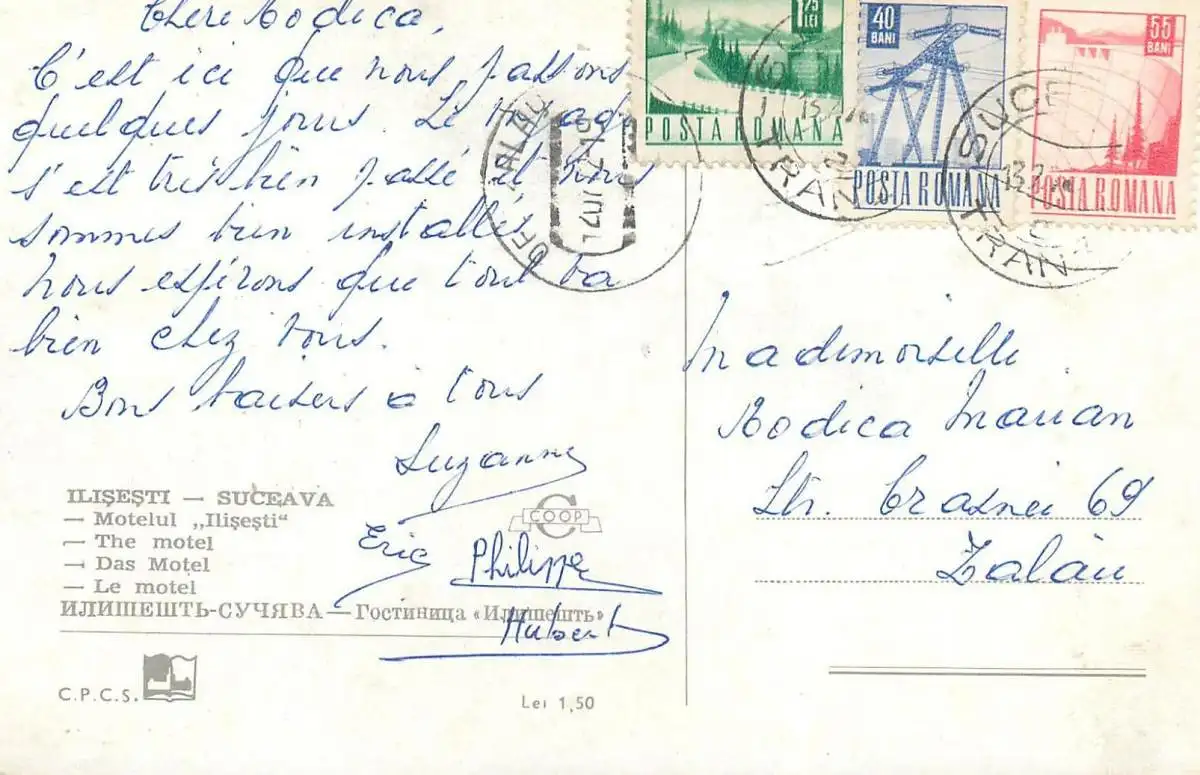 Chère Rodica,
C'est ici que nous passons
quelques jours. Le voyage
s'est très bien passé et nous
sommes bien installés
nous espérons que tout va
bien chez vous.
Bons baisers à tous
Suzanne
Eric Philippe
Hubert
ILIŞEŞTI — SUCEAVA
— Motelul „Ilişeşti“
— The motel
— Das Motel
— Le motel
ИЛИШЕШТЬ-СУЧЯВА — Гостиница «Илишешть»
COOP
C.P.C.S.
Lei 1,50
1,25 LEI
POSTA ROMANA
40 BANI
POSTA ROMANA
55 BANI
POSTA ROMANA
SUCE
TRAN
TRAN
Mademoiselle
Rodica Marian
Str. Crasnei 69
Zalău